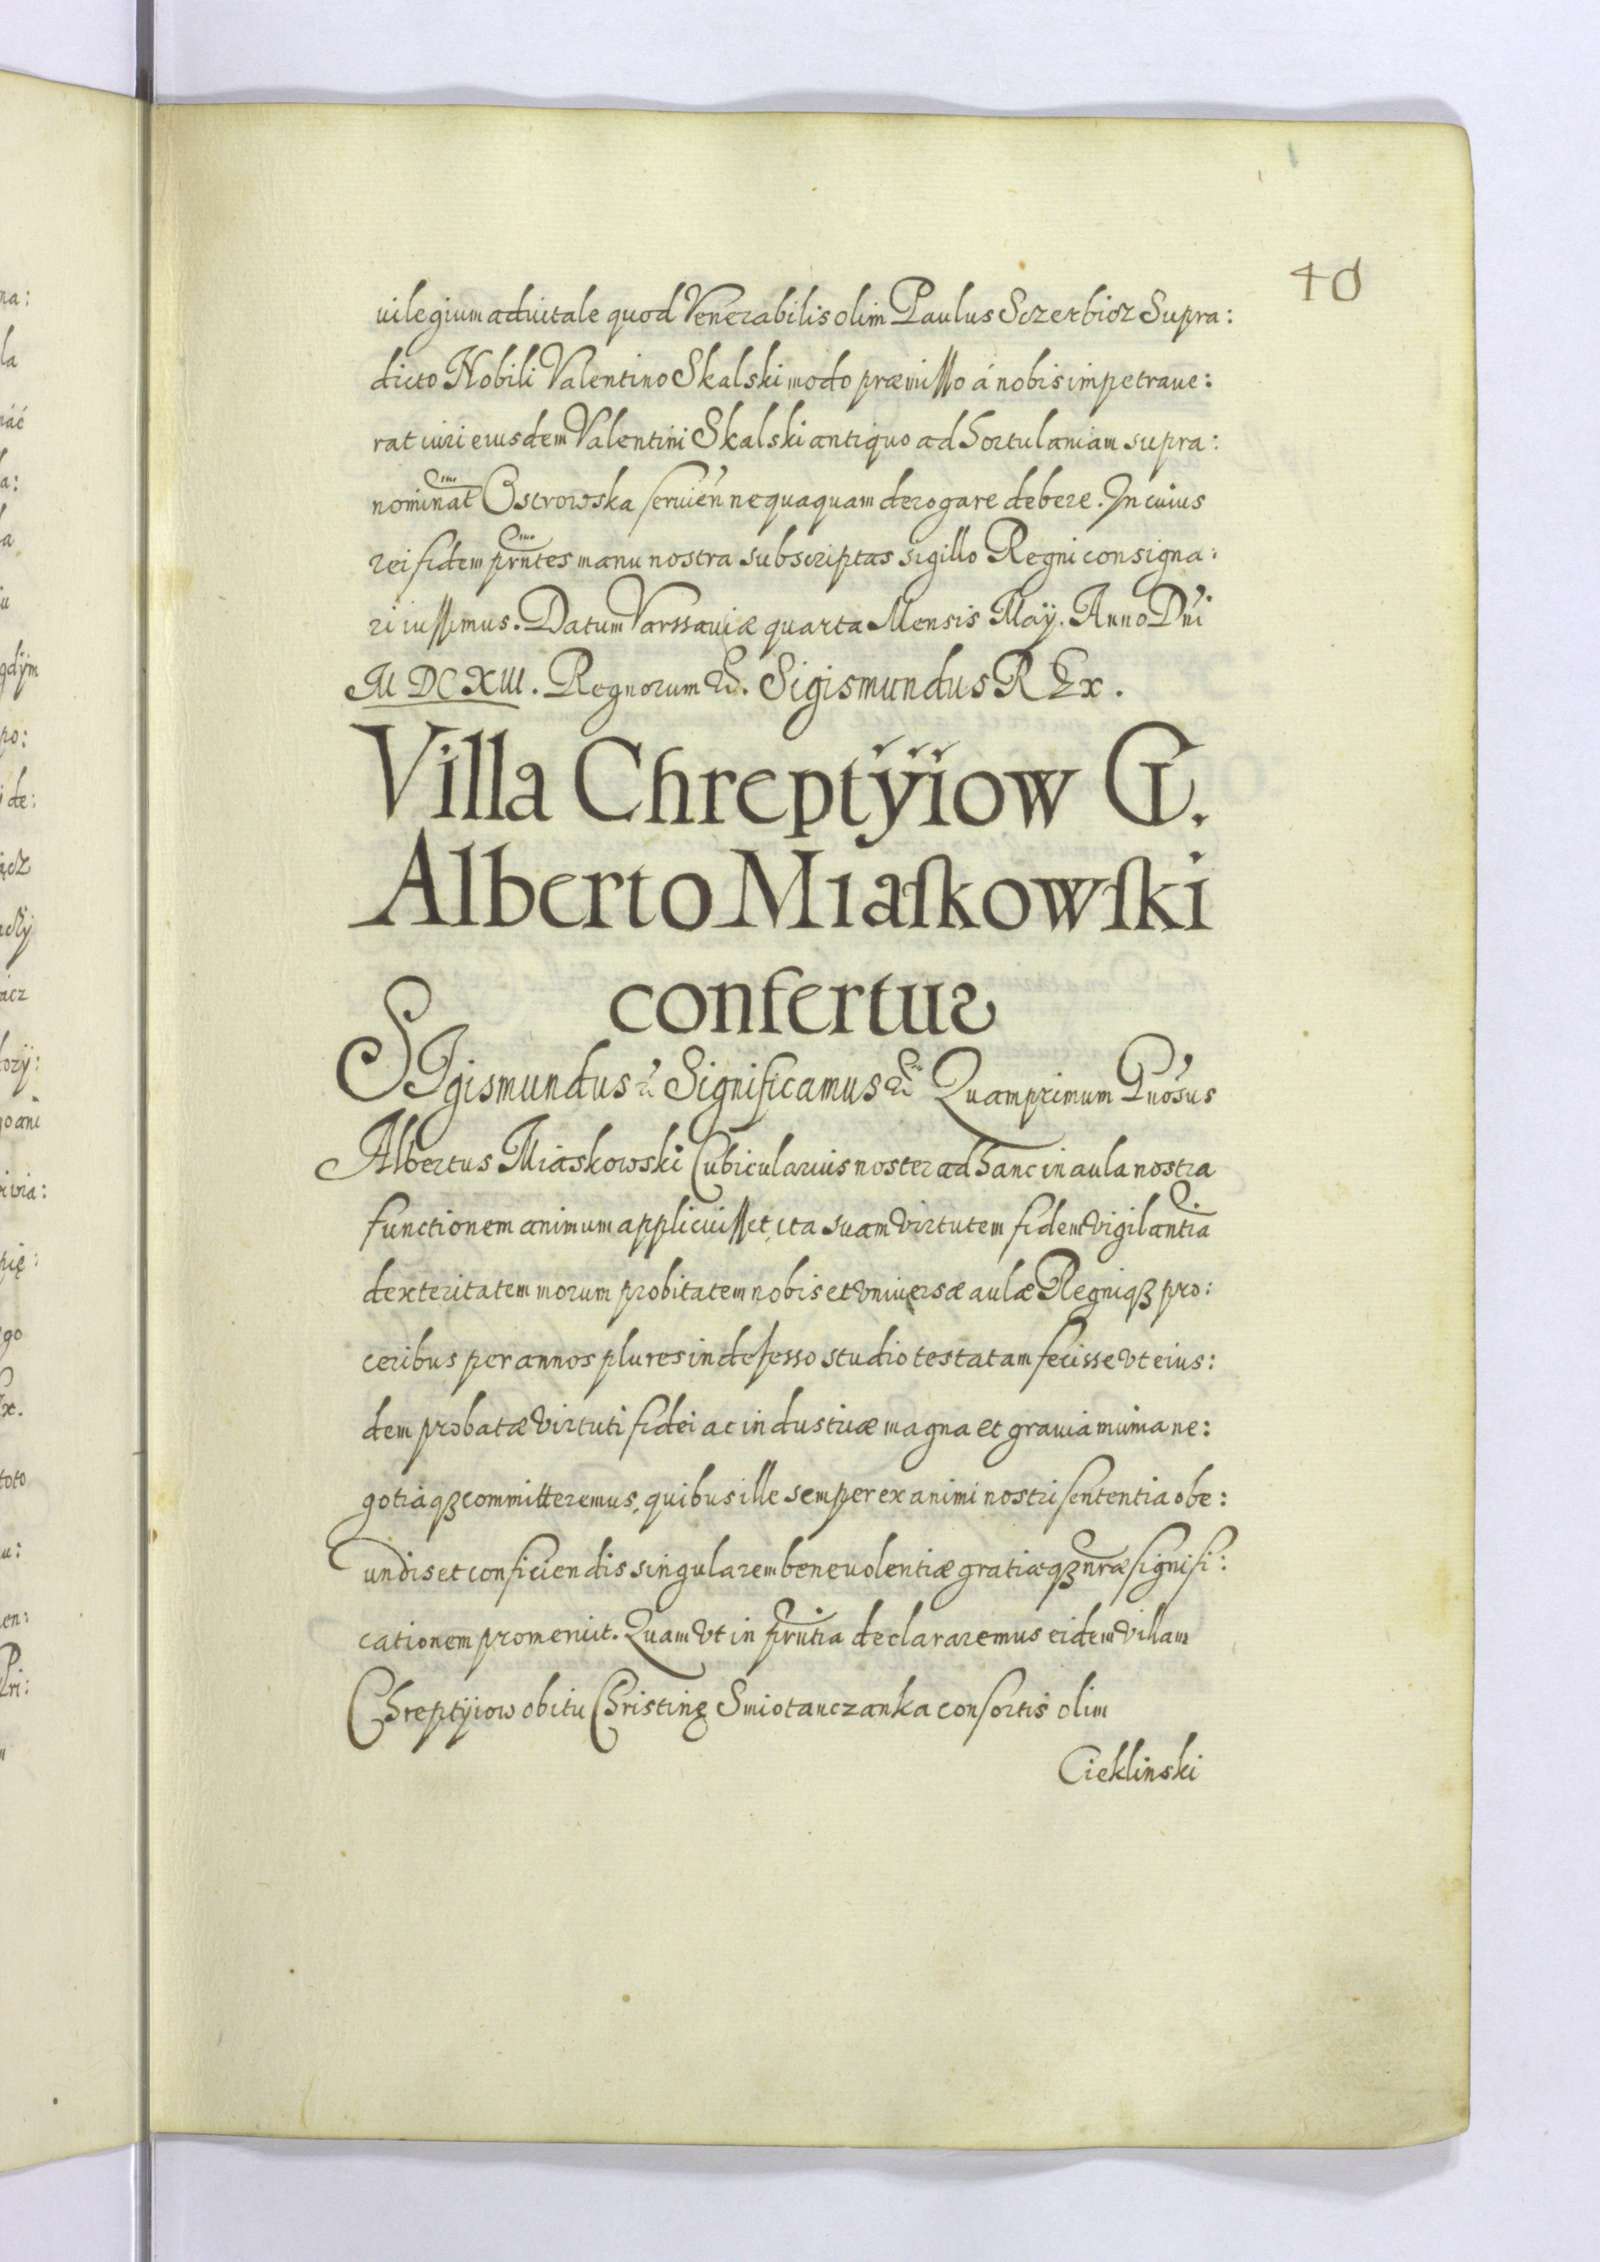 40
uilegium aduitale quod Venerabilis olim Paulus Sczerbicz Supra:
dicto Nobili Valentino Skalski modo præmisso á nobis impetraue:
rat iuri eiusdem Valentini Skalski antiquo ad hortulaniam supra:
nominat Ostrowska seruień nequaquam derogare debere. In cuius
rei fidem prntes manu nostra subscriptas sigillo Regni consigna:
ri iussimus. Datum Varssauiæ quarta Mensis Maÿ. Anno Dni
M DC XIII. Regnorum &. Sigismundus REx.
Villa Chreptÿiow G.
Alberto Miaskowski
confertur
SIgismundus & Significamus & Quamprimum Gnosus
Albertus Miaskowski Cubicularius noster ad hanc in aula nostra
functionem animum applicuisset, ita suam virtutem fidem vigilantia
dexteritatem morum probitatem nobis et vniuersæ aulæ Regniqȝ pro:
ceribus per annos plures indefesso studio testatam fecisse vt eius:
dem probatæ virtuti fidei ac industriæ magna et grauia munia ne:
gotiaqȝ committeremus, quibus ille semper ex animi nostri sententia obe:
undis et conficiendis singularem beneuolentiæ gratiæqȝ nræ signifi:
cationem promeruit. Quam vt in prntia declararemus eidem villam
Chreptÿiow obitu Christinę Smiotanczanka consortis olim
Cieklinski